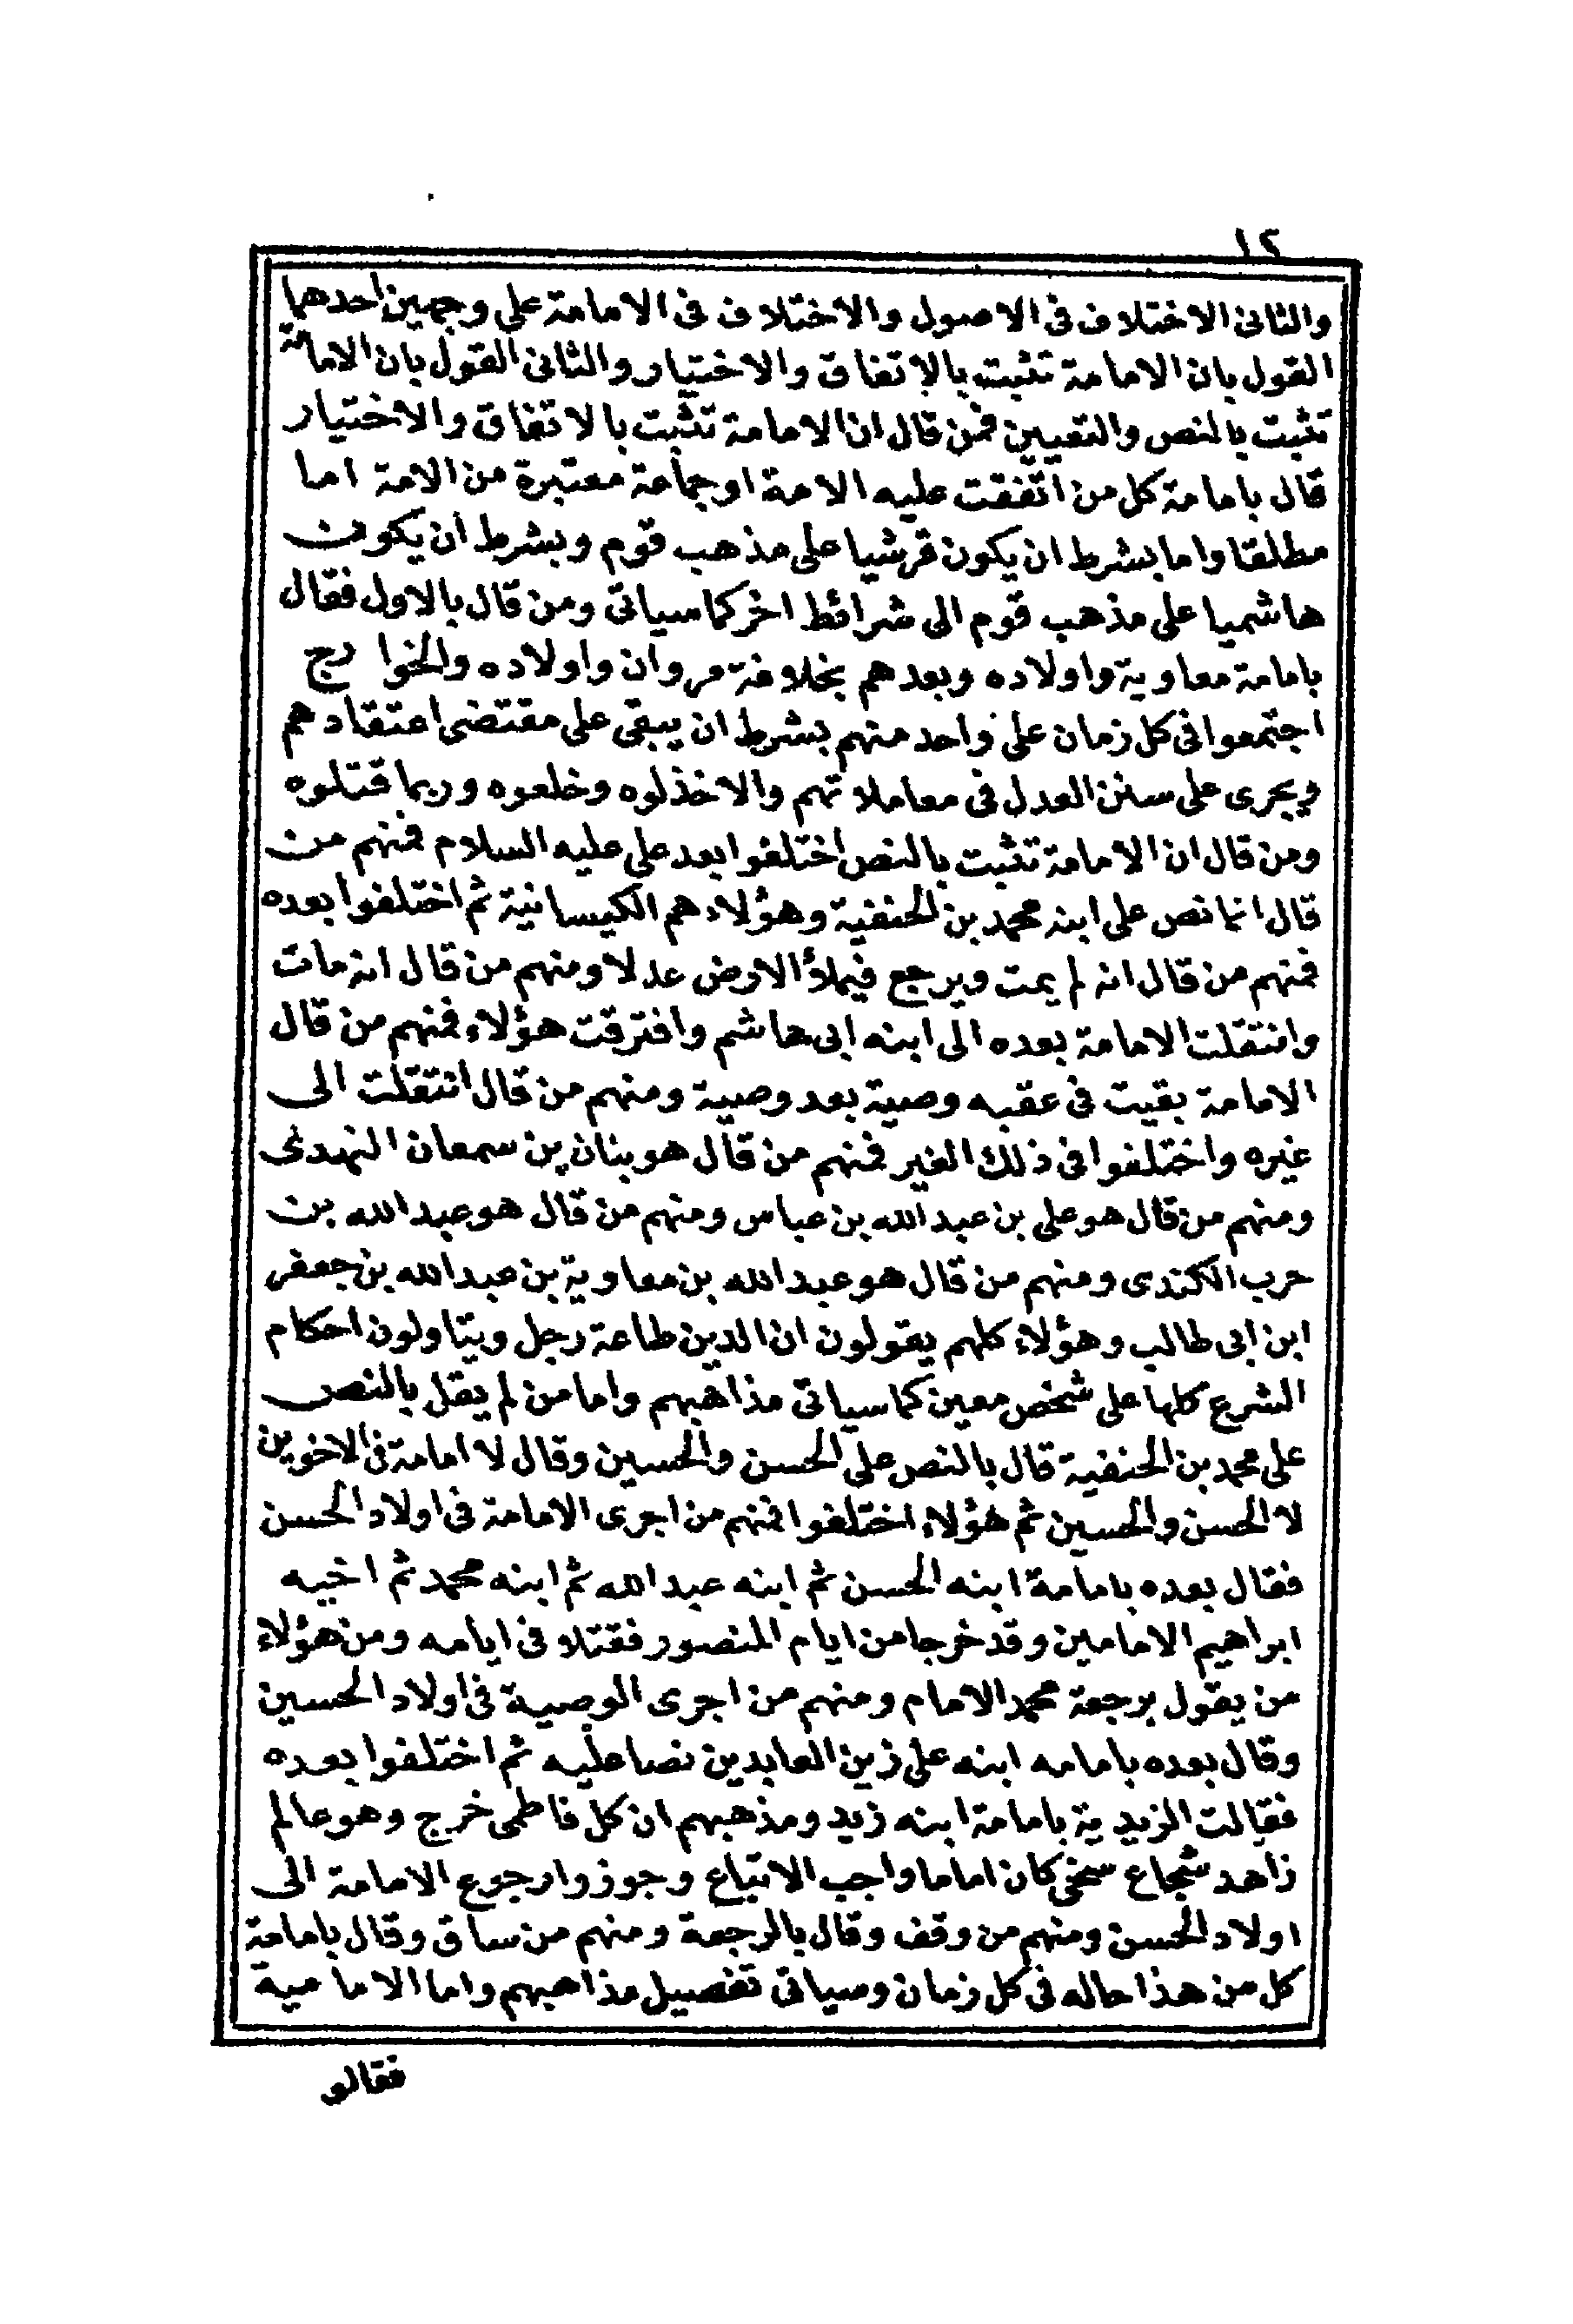 ١٢
والثانى الاختلاف فى الاصول والاختلاف فى الامامة على وجهين احدهما
القول بان الامامة تثبت بالاتفاق والاختيار والثانى القول بان الامامة
تثبت بالنص والتعيين فمن قال ان الامامة تثبت بالاتفاق والاختيار
قال بامامة كل من اتفقت عليه الامة او جماعة معتبرة من الامة اما
مطلقا واما بشرط ان يكون قرشيا على مذهب قوم وبشرط ان يكون
هاشميا على مذهب قوم الى شرائط اخر كما سياتى ومن قال بالاول فقال
بامامة معاوية واولاده وبعدهم بخلافة مروان واولاده والخوارج
اجتمعوا فى كل زمان على واحد منهم بشرط ان يبقى على مقتضى اعتقادهم
ويجرى على سنن العدل فى معاملاتهم والاخذلوه وخلعوه وربما قتلوه
ومن قال ان الامامة تثبت بالنص اختلفوا بعد على عليه السلام فمنهم من
قال انما نص على ابنه محمد بن الحنفية وهؤلاء هم الكيسانية ثم اختلفوا بعده
فمنهم من قال انه لم يمت ويرجع فيملأ الارض عدلا ومنهم من قال انه مات
وانتقلت الامامة بعده الى ابنه ابى هاشم وافترقت هؤلاء فمنهم من قال
الامامة بقيت فى عقبه وصية بعد وصية ومنهم من قال انتقلت الى
غيره واختلفوا فى ذلك الغير فمنهم من قال هو بنان بن سمعان النهدى
ومنهم من قال هو على بن عبد الله بن عباس ومنهم من قال هو عبد الله بن
حرب الكندى ومنهم من قال هو عبد الله بن معاوية بن عبد الله بن جعفر
ابن ابى طالب وهؤلاء كلهم يقولون ان الدين طاعة رجل ويتاولون احكام
الشرع كلها على شخص معين كما سياتى مذاهبهم واما من لم يقل بالنص
على محمد بن الحنفية قال بالنص على الحسن والحسين وقال لا امامة فى الاخوين
لا الحسن والحسين ثم هؤلاء اختلفوا فمنهم من اجرى الامامة فى اولاد الحسن
فقال بعده بامامة ابنه الحسن ثم ابنه عبد الله ثم ابنه محمد ثم اخيه
ابراهيم الامامين وقد خرجا من ايام المنصور فقتلا فى ايامه ومن هؤلاء
من يقول برجعة محمد الامام ومنهم من اجرى الوصية فى اولاد الحسين
وقال بعده بامامه ابنه على زين العابدين نصا عليه ثم اختلفوا بعده
فقالت الزيدية بامامة ابنه زيد ومذهبهم ان كل فاطمى خرج وهو عالم
زاهد شجاع سخى كان اماما واجب الاتباع وجوزوا رجوع الامامة الى
اولاد الحسن ومنهم من وقف وقال بالرجعة ومنهم من ساق وقال بامامة
كل من هذا حاله فى كل زمان وسياتى تفصيل مذاهبهم واما الامامية
فقالو